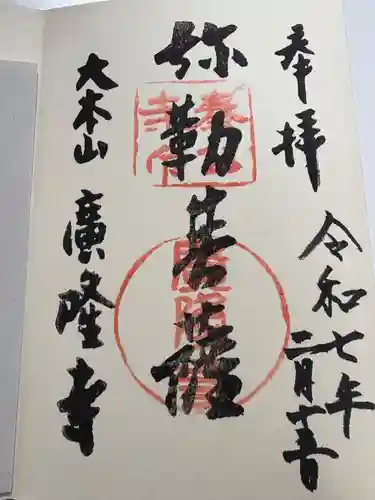 奉拝
令和七年
二月十一日
弥勒菩薩
大本山 廣隆寺